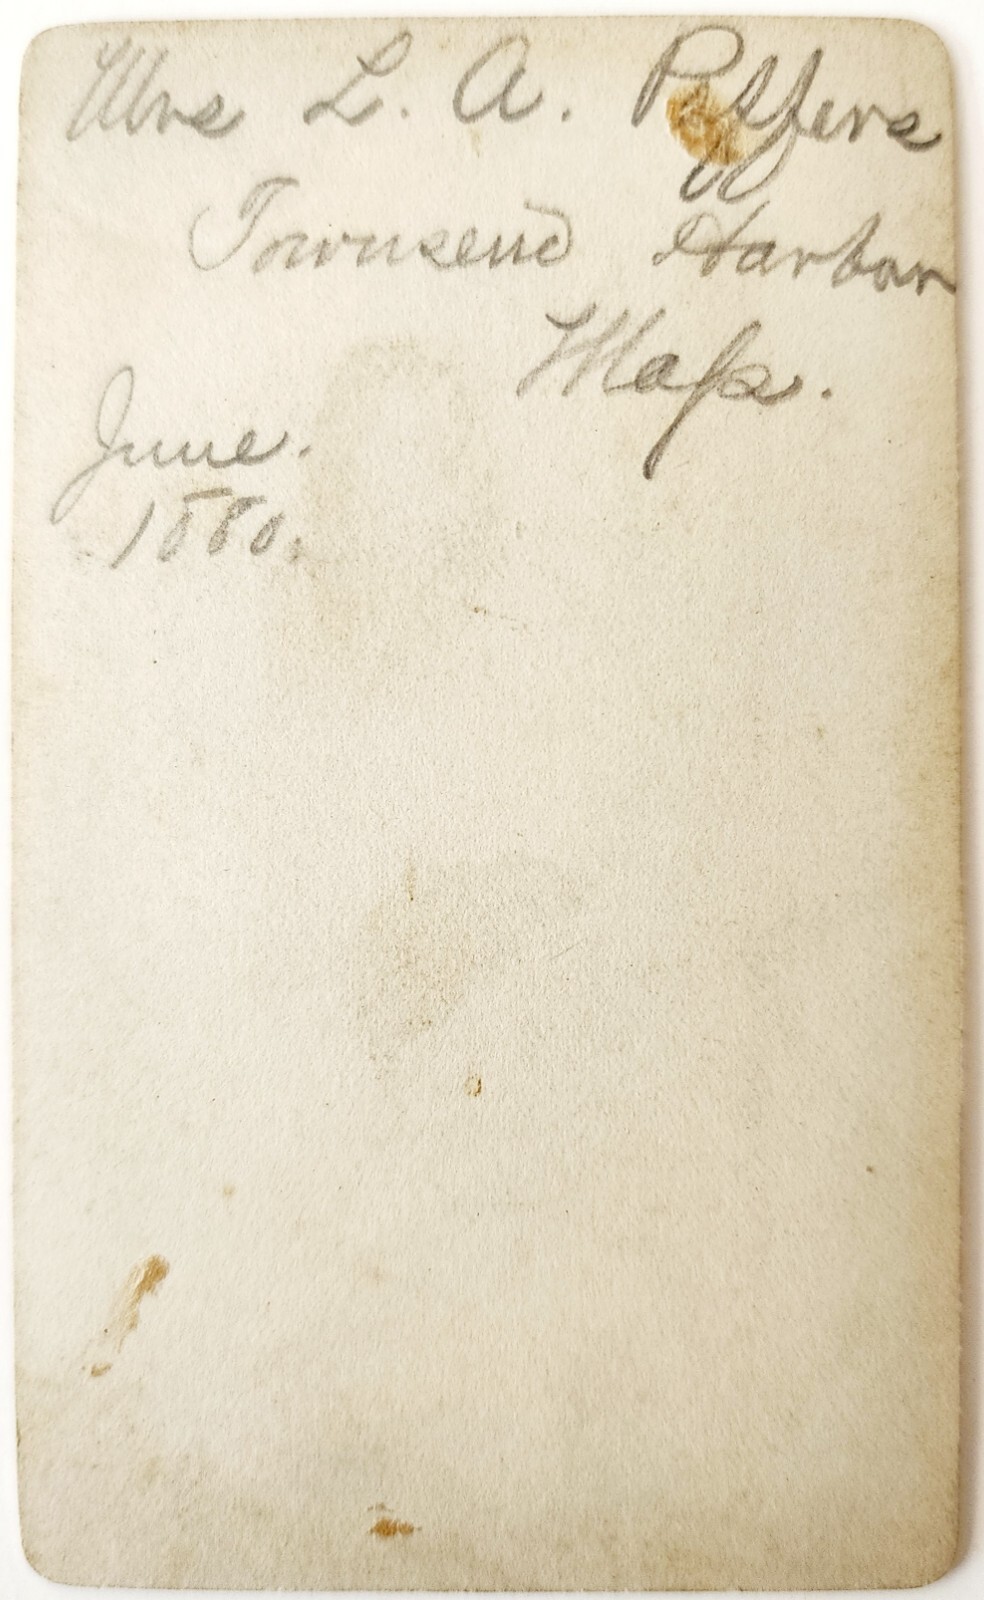 Mrs L. A.
Townsend Harbor
Maſs.
June.
1880.